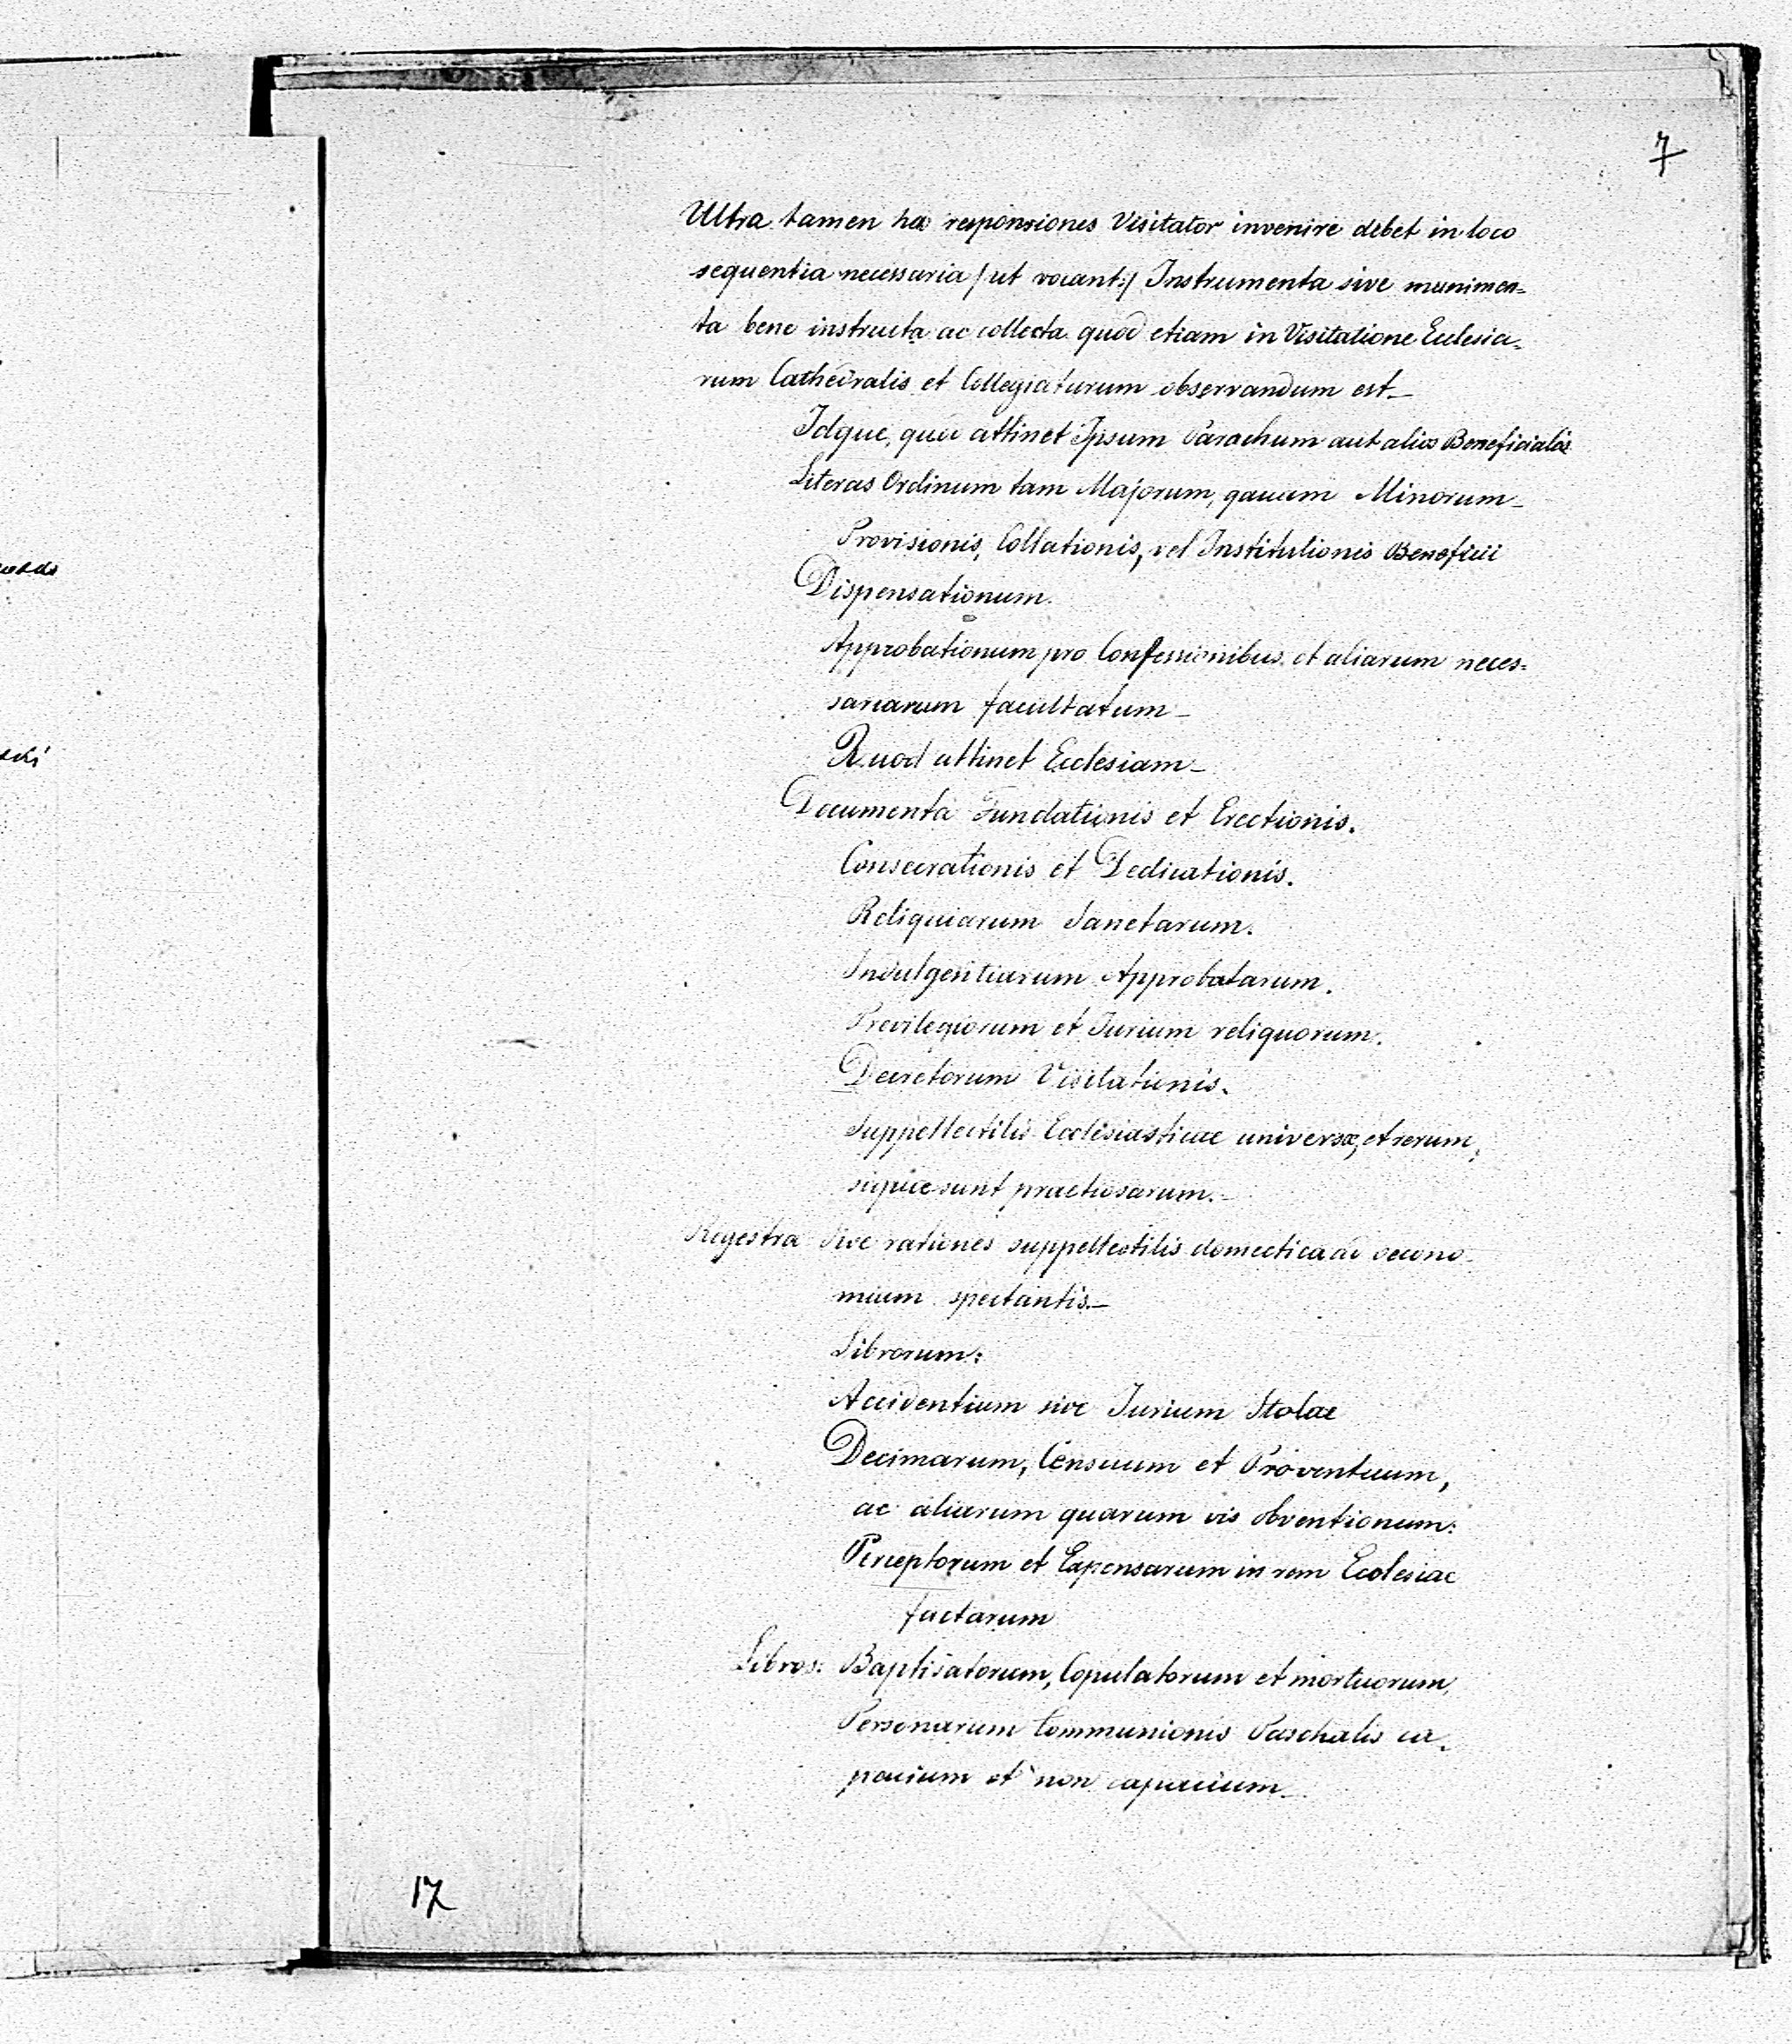 7
Ultra tamen has responsiones Visitator invenire debet in loco
sequentia necessaria /ut vocant:/ Instrumenta sive munimen=
ta bene instructa ac collecta quod etiam in Visitatione Eclesia-
rum Cathedralis et Collegiaturum observandum est_
Idque, quod attinet Ipsum Parochum aut alios Beneficiatos
Literas Ordinum tam Majorum, qauam Minorum_
Provisionis, Collationis, vel Institutionis Beneficii
Dispensationum.
Approbationum pro Confessionibus et aliarum neces=
sariarum facultatum_
Quod attinet Ecclesiam_
Documenta Fundationis et Erectionis.
Consecrationis et Dedicationis.
Reliquiarum Sanctarum.
Indulgentiarum Approbatarum.
Previlegiorum et Jurium reliquorum.
Decretorum Visitationis.
Suppellectilis Ecclesiasticae universæ, et rerum,
siquæ sunt praetiosarum._
Regestra sive rationes suppellectilis domectica ad oecono-
mium spectantis._
Librorum:
Accidentium sive Jurium Stolae
Decimarum, Censuum et Proventuum,
ac aliarum quarum vis obventionum:
Perceptorum et Expensarum in rem Ecclesiae
factarum
Libros: Baptisatorum, Copulatorum et mortuorum,
Personarum Communionis Paschalis ca-
pacium et non capacium_
17